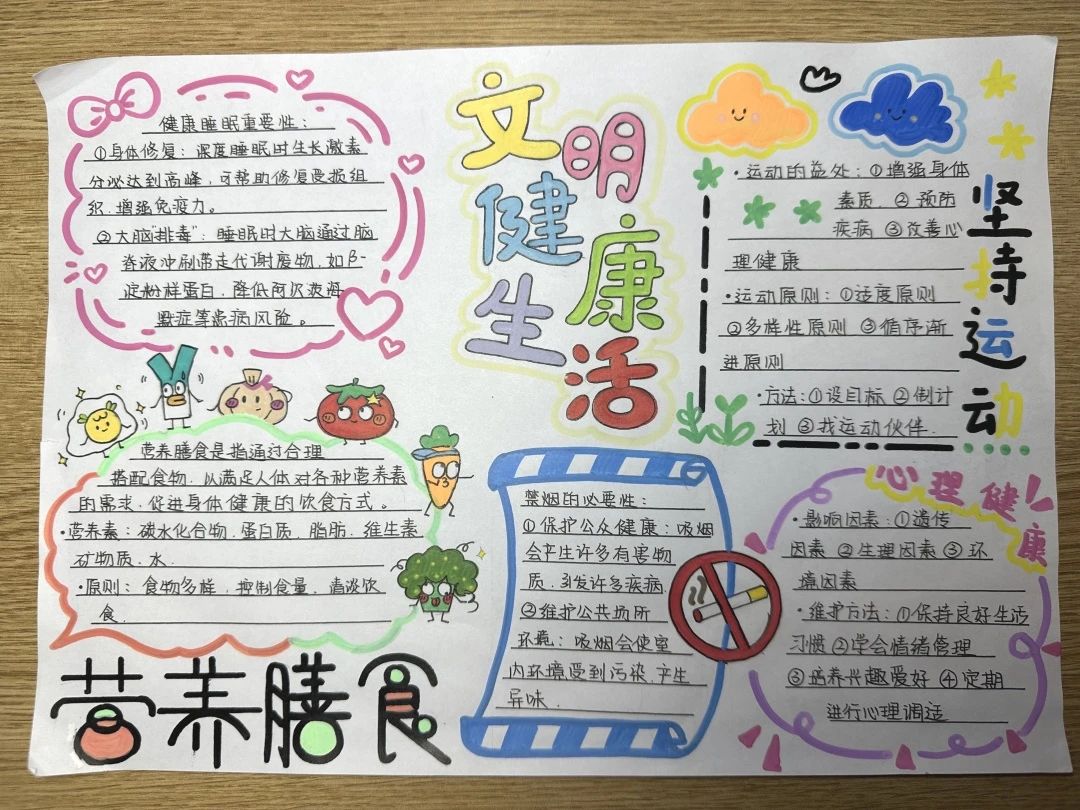 文明
健康
生活
健康睡眠重要性：
①身体修复：深度睡眠时生长激素
分泌达到高峰，可帮助修复受损组
织，增强免疫力。
②大脑"排毒"：睡眠时大脑通过脑
脊液冲刷带走代谢废物，如β-
淀粉样蛋白，降低阿尔茨海
默症等患病风险。
坚持运动
·运动的益处：①增强身体
素质．②预防
疾病 ③改善心
理健康
·运动原则：①适度原则
②多样性原则 ③循序渐
进原则
·方法：①设目标 ②倒计
划 ③找运动伙伴．
营养膳食是指通过合理
搭配食物，以满足人体对各种营养素
的需求，促进身体健康的饮食方式。
·营养素：碳水化合物．蛋白质．脂肪．维生素
矿物质．水．
·原则：食物多样，控制食量，清淡饮
食．
营养膳食
禁烟的必要性：
①保护公众健康：吸烟
会产生许多有害物
质，引发许多疾病．
②维护公共场所
环境：吸烟会使室
内环境受到污染，产生
异味．
心理健康
·影响因素：①遗传
因素 ②生理因素 ③环
境因素
·维护方法：①保持良好生活
习惯 ②学会情绪管理
③培养兴趣爱好 ④定期
进行心理调适